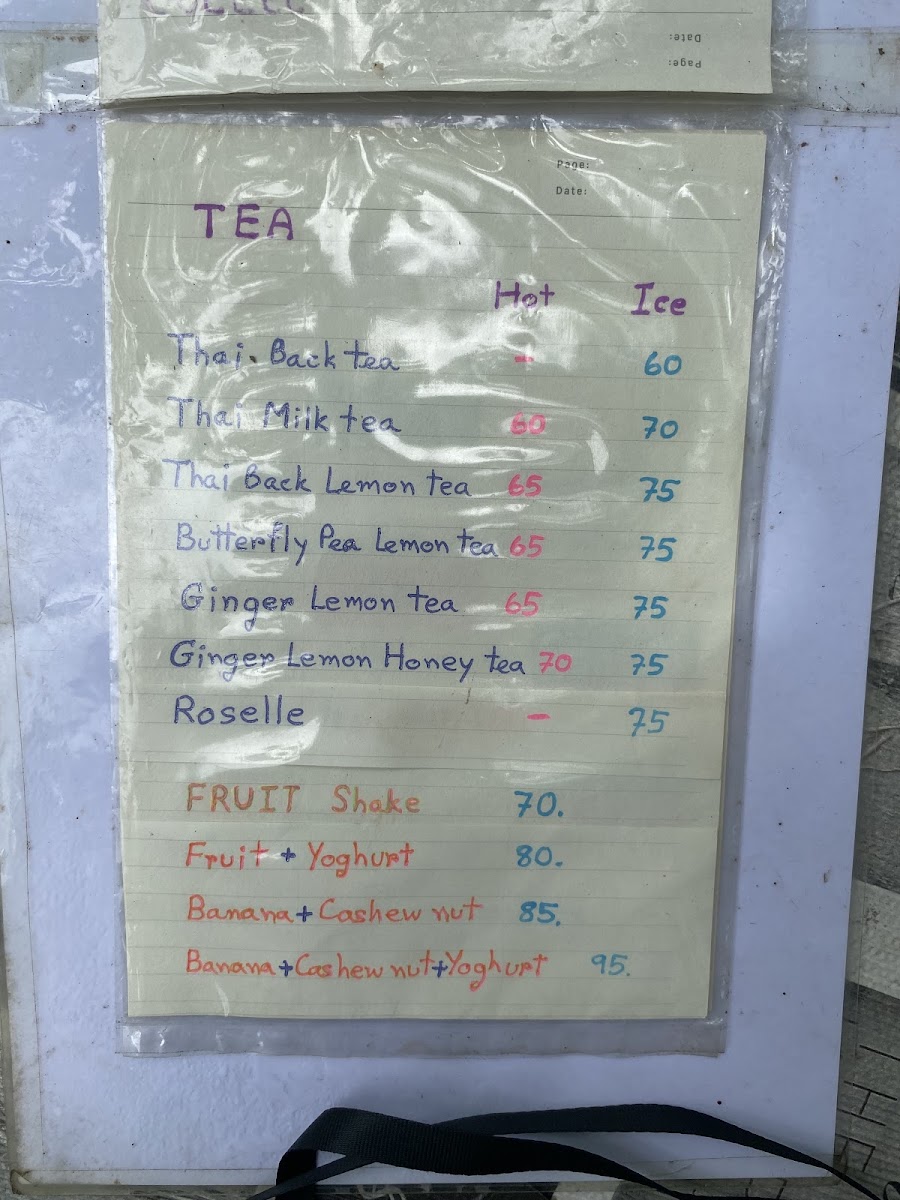 Date:
Page:
Page:
Date:
TEA
Hot Ice
Thai. Back tea - 60
Thai Milk tea 60 70
Thai Back Lemon tea 65 75
Butterfly Pea Lemon tea 65 75
Ginger Lemon tea 65 75
Ginger Lemon Honey tea 70 75
Roselle - 75
FRUIT Shake 70.
Fruit + Yoghurt 80.
Banana + Cashew nut 85.
Banana + Cashew nut + Yoghurt 95.